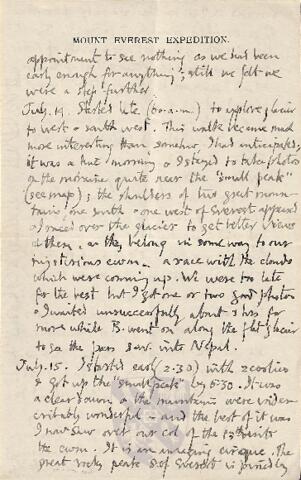 MOUNT EVEREST EXPEDITION.
appointment to see nothing as we had been
early enough for anything; still we felt we
were a step further.
July. 14. Started late (6.0 a.m.) to explore glacier
to west & south west. This walk became much
more interesting than somehow I had anticipated;
it was a hot morning & I stayed to take photos
on the moraine quite near the "small peak"
(see map); the shoulders of two great moun-
tains one south & one west of Everest appeared
& I raced over the glacier to get better views
of them, as they belong in some way to our
mysterious cwm – a race with the clouds
which were coming up. We were too late
for the best but I got one or two good photos
& I waited unsuccessfully about 3 hrs for
more while B. went on along the flat glacier
to see the pass S.W. into Nepal.
July. 15. I started early (2.30) with 2 coolies
& got up the "small peak" by 5.30. It was
a clear dawn & the mountains were indes-
cribably wonderful – and the best of it was
I now saw over our col of the 13th into
the cwm. It is an amazing cirque. The
great rocky peak S of Everest is joined by